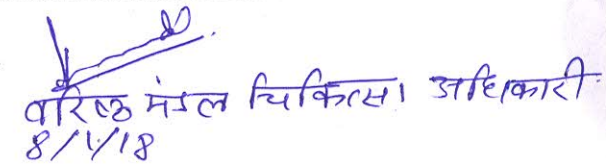 वरिष्ठ मंडल चिकित्सा अधिकारी
8/1/18